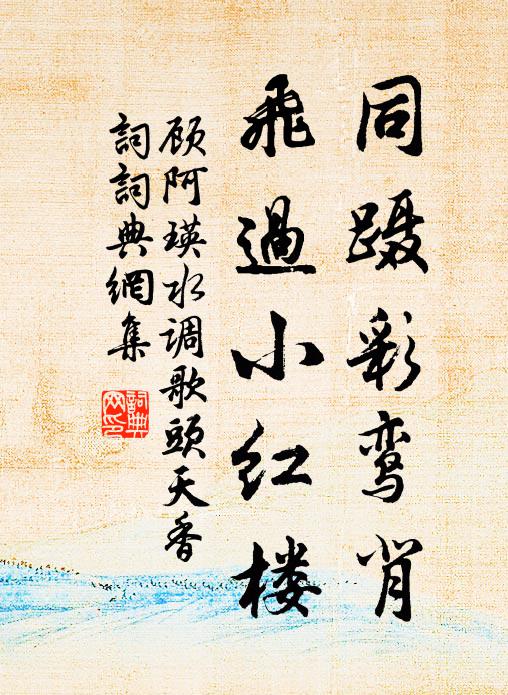 同蹑彩鸾背
飛過小红楼
顾阿瑛水调歌頭天香
詞詞典網集
詞典网印